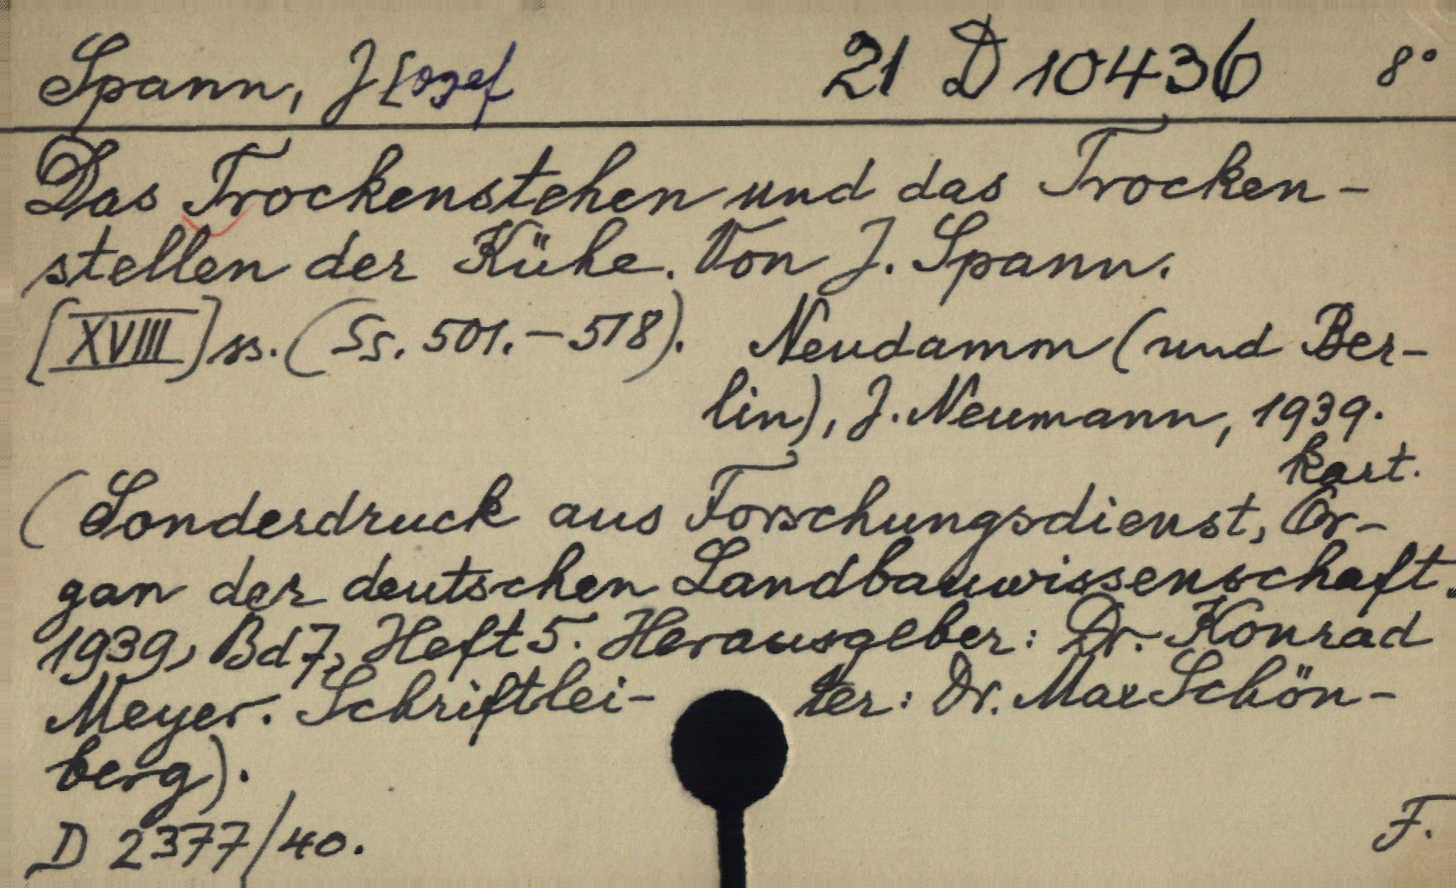 Spann, J[ozef 21 D 10436 8°
Das Trockenstehen und das Trocken-
stellen der Kühe. Von J. Spann.
[XVIII] ss. (Ss. 501.-518). Neudamm (und Ber-
lin), J. Neumann, 1939.
kart.
(Sonderdruck aus Forschungsdienst, Or-
gan der deutschen Landbauwissenschaft.
1939, Bd 7, Heft 5. Herausgeber: Dr. Konrad
Meyer. Schriftlei- ter: Dr. Max Schön-
berg).
D 2377/40. F.